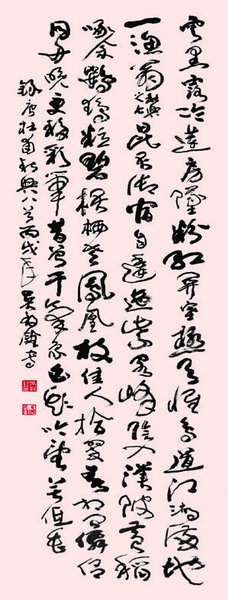 雲黑露冷蓮房墜粉紅關塞極天惟鳥道江湖滿地
一漁翁昆吾御宿自逶迤紫閣峰陰入渼陂香稻
啄余鸚鵡粒碧梧棲老鳳凰枝佳人拾翠春相問仙侶
同舟晚更移彩筆昔曾干氣象白頭吟望苦低垂
錄唐杜甫秋興八首丙戌年吳書